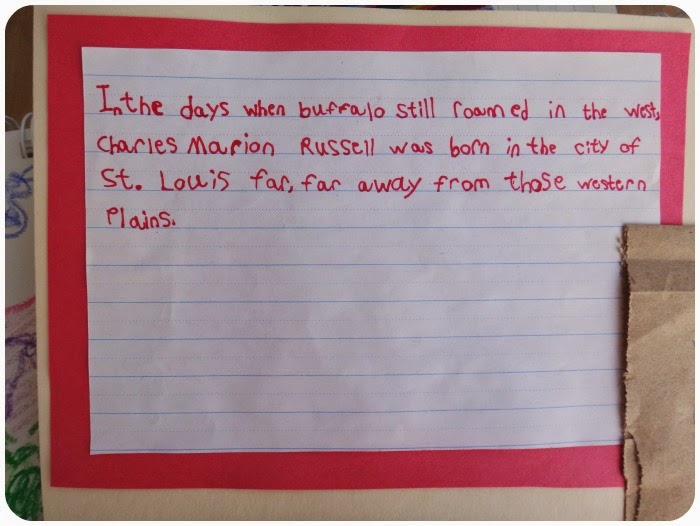 In the days when buffalo still roamed in the west,
Charles Marion Russell was born in the city of
St. Louis far, far away from those western
Plains.